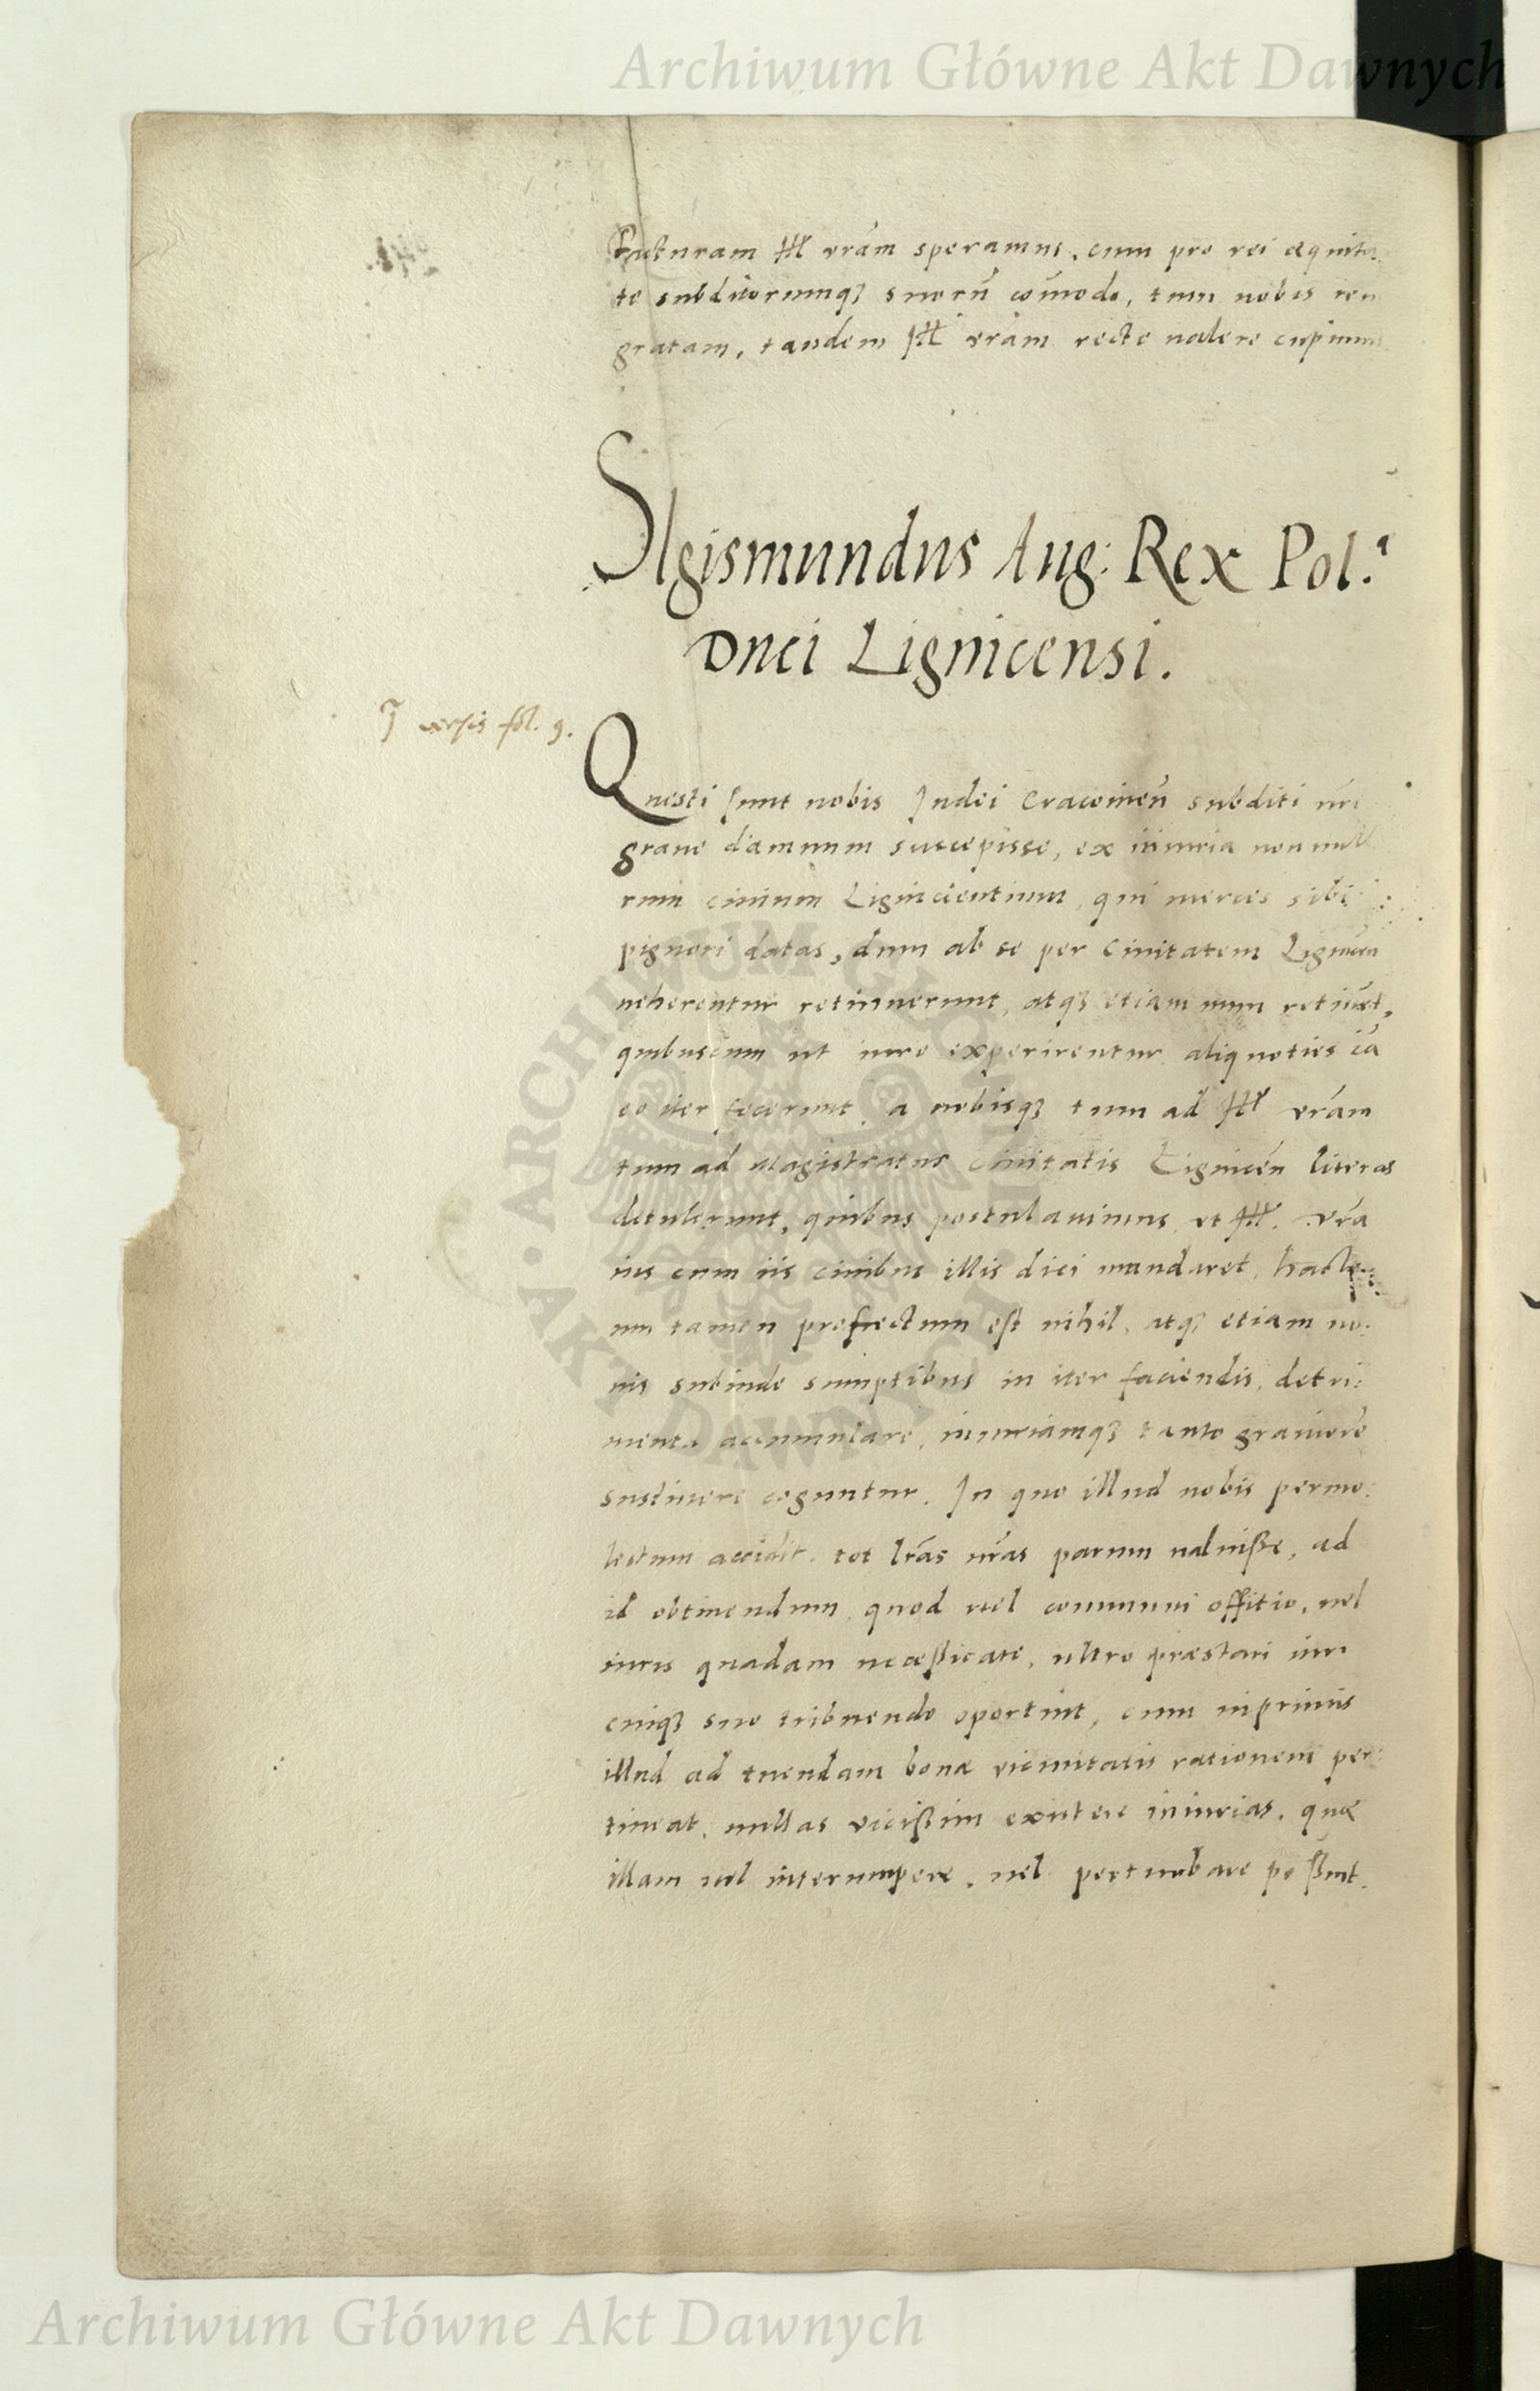 Archiwum Główne Akt Dawnych
Facturam Ill vrãm speramus, cum pro rei æquita
te subditorumq3 suorũ com̃odo, tum nobis rem
gratam, tandem Ill vrãm recte ualere cupimus
SIgismundus Aug: Rex Pol:
Duci Lignicensi.
versis fol. 9.
Questi sunt nobis Iudei Cracouieñ subditi nr̃i
graue damnum suscepisse, ex iniuria non null
rum ciuium Lignicientium, qui merces sibi
pignori datas, dum ab se per Ciuitatem Lignicen
ueherentur retinuerunt, atq3 etiam num retinẽt,
quibuscum ut iure experirentur aliquoties iã
eo iter fecerunt, a nobisq3 tum ad Ill vrãm
tum ad Magistratus Ciuitatis Ligniceñ literas
detulerunt, quibus postulauimus vt Ill. vrã
ius cum iis ciuibus illis dici mandaret, hacte:
nus tamen profectum est nihil, atq3 etiam no:
uis subinde sumptibus in iter faciendis, detri:
menta accumulare, iniuriamq3 tanto grauiorẽ
sustinere coguntur. In quo illud nobis permo:
lestum accidit, tot lrãs nrãs parum ualuisse, ad
id obtinendum, quod uel communi offitio, uel
iuris quadam necessitate, ultro præstari iure
cuiq3 suo tribuendo oportuit, cum inprimis
illud ad tuendam bonæ vicinitatis rationem per:
tineat, nullas vicissim existere iniurias, quæ
illam uel interrumpere, uel perturbare possint.
ARCHIWUM GŁÓWNE · AKT DAWNYCH ·
Archiwum Główne Akt Dawnych